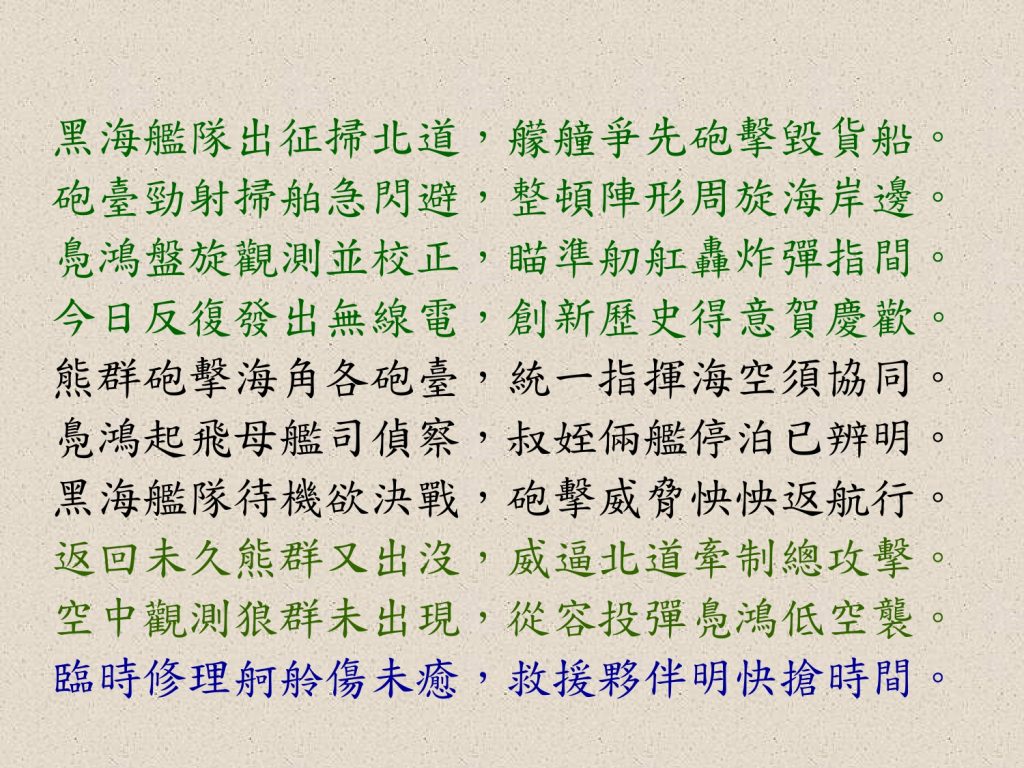 黑海艦隊出征掃北道，艨艟爭先砲擊毀貨船。
砲臺勁射掃舶急閃避，整頓陣形周旋海岸邊。
鳧鴻盤旋觀測並校正，瞄準舠舡轟炸彈指間。
今日反復發出無線電，創新歷史得意賀慶歡。
熊群砲擊海角各砲臺，統一指揮海空須協同。
鳧鴻起飛母艦司偵察，叔姪倆艦停泊已辨明。
黑海艦隊待機欲決戰，砲擊威脅怏怏返航行。
返回未久熊群又出沒，威逼北道牽制總攻擊。
空中觀測狼群未出現，從容投彈鳧鴻低空襲。
臨時修理舸舲傷未癒，救援夥伴明快搶時間。